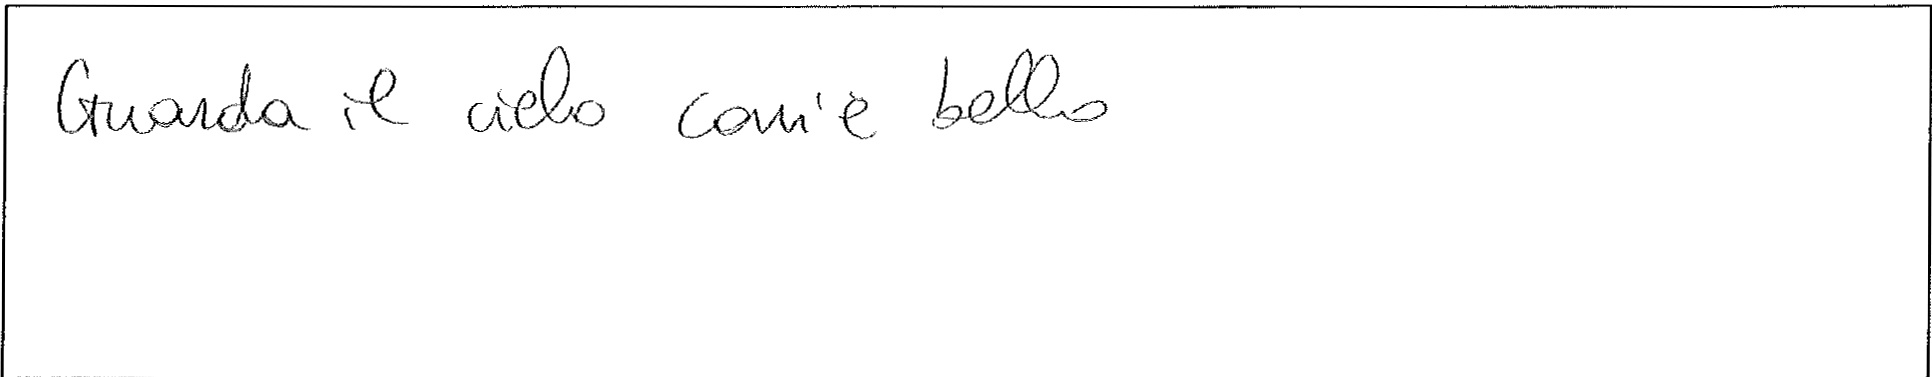 Guarda il cielo com'è bello